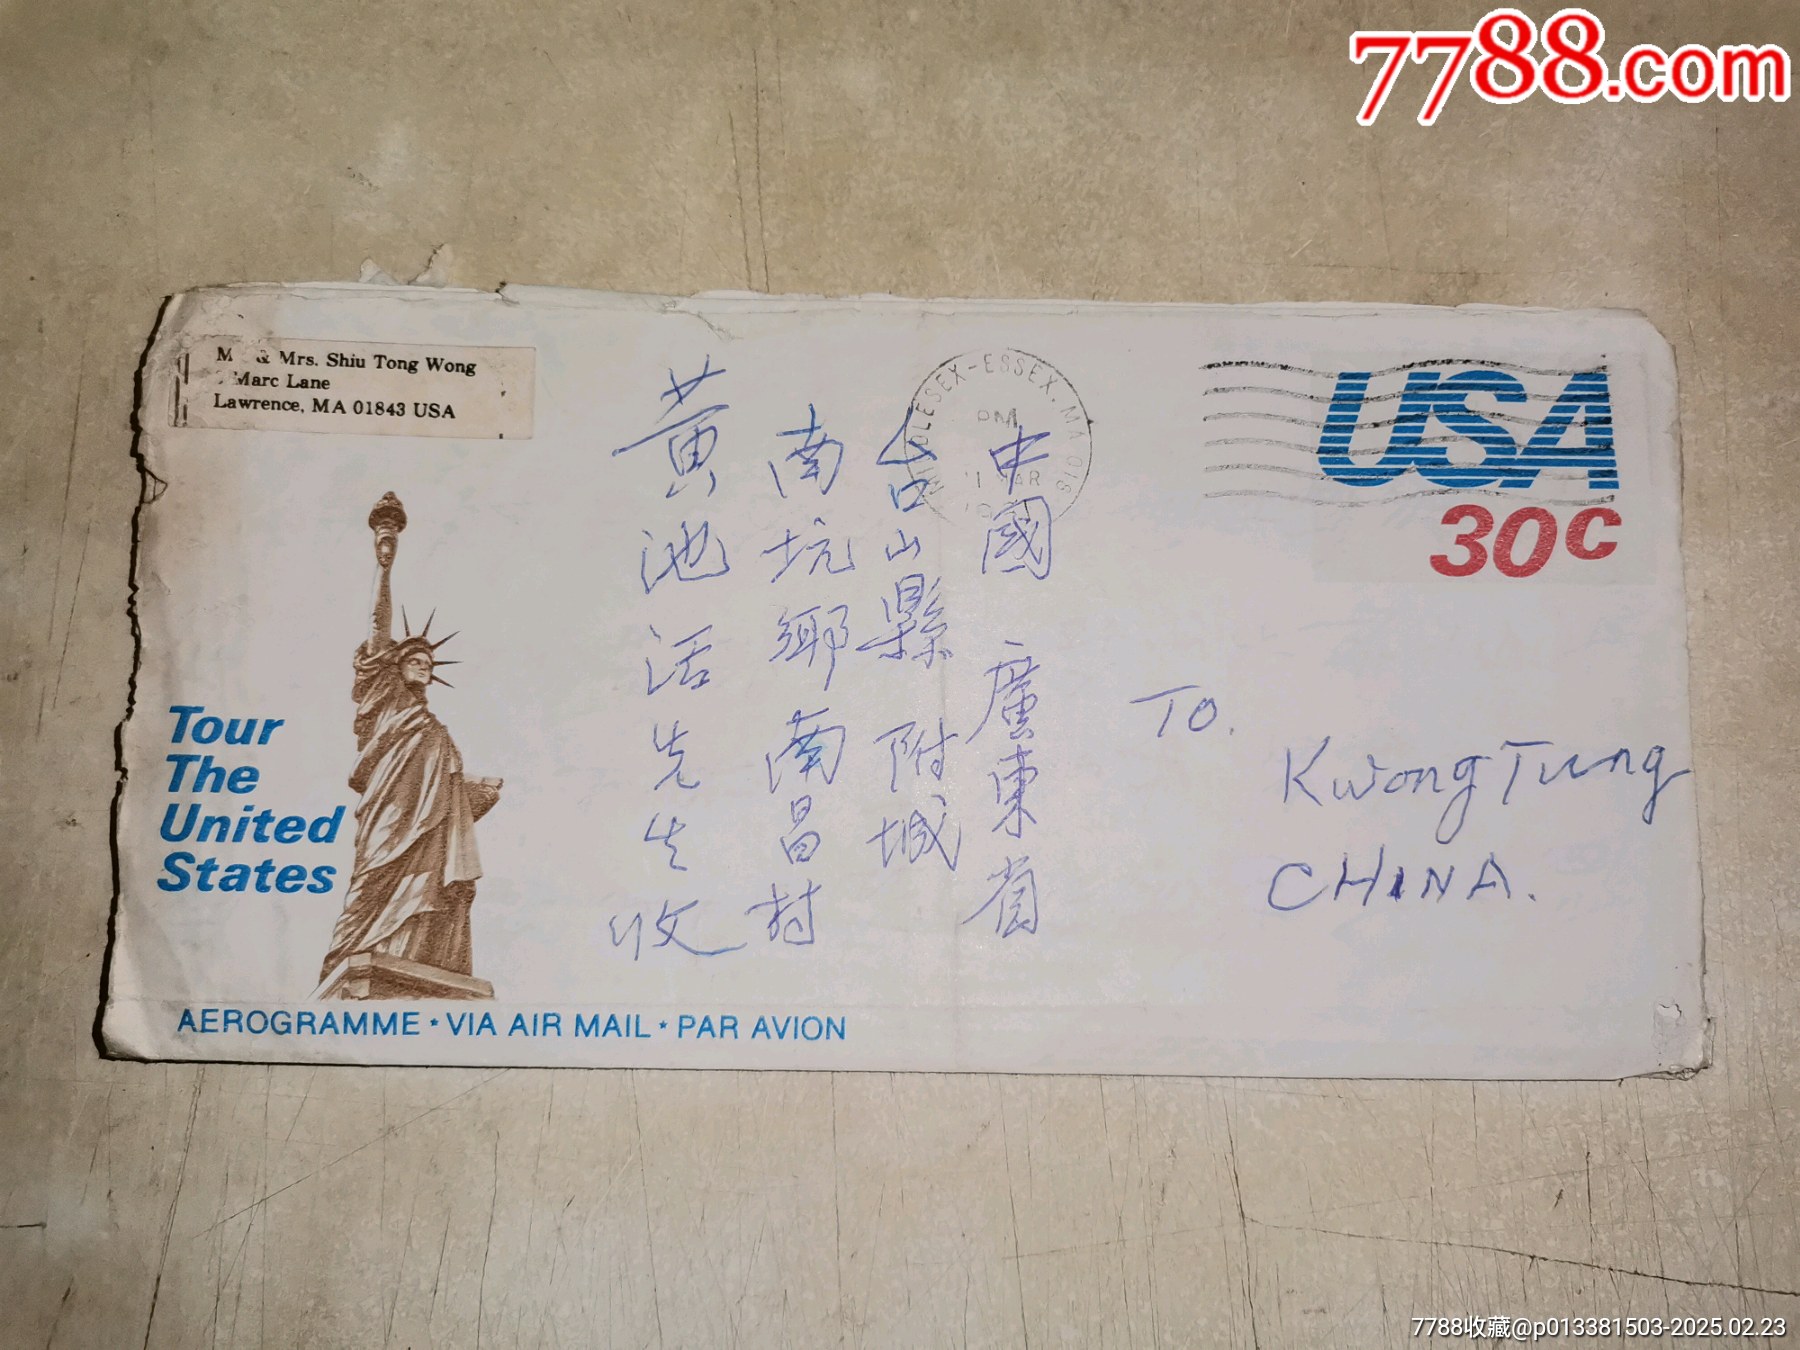 7788.com
Mrs. Shiu Tong Wong
Marc Lane
Lawrence, MA 01843 USA
ESSEX, MA 018
PM
USA
30c
中國 廣東省
台山縣 附城
南坑鄉 南昌村
黃池活先生收
TO.
Kwong Tung
CHINA.
Tour
The
United
States
AEROGRAMME * VIA AIR MAIL * PAR AVION
7788收藏@p013381503-2025.02.23